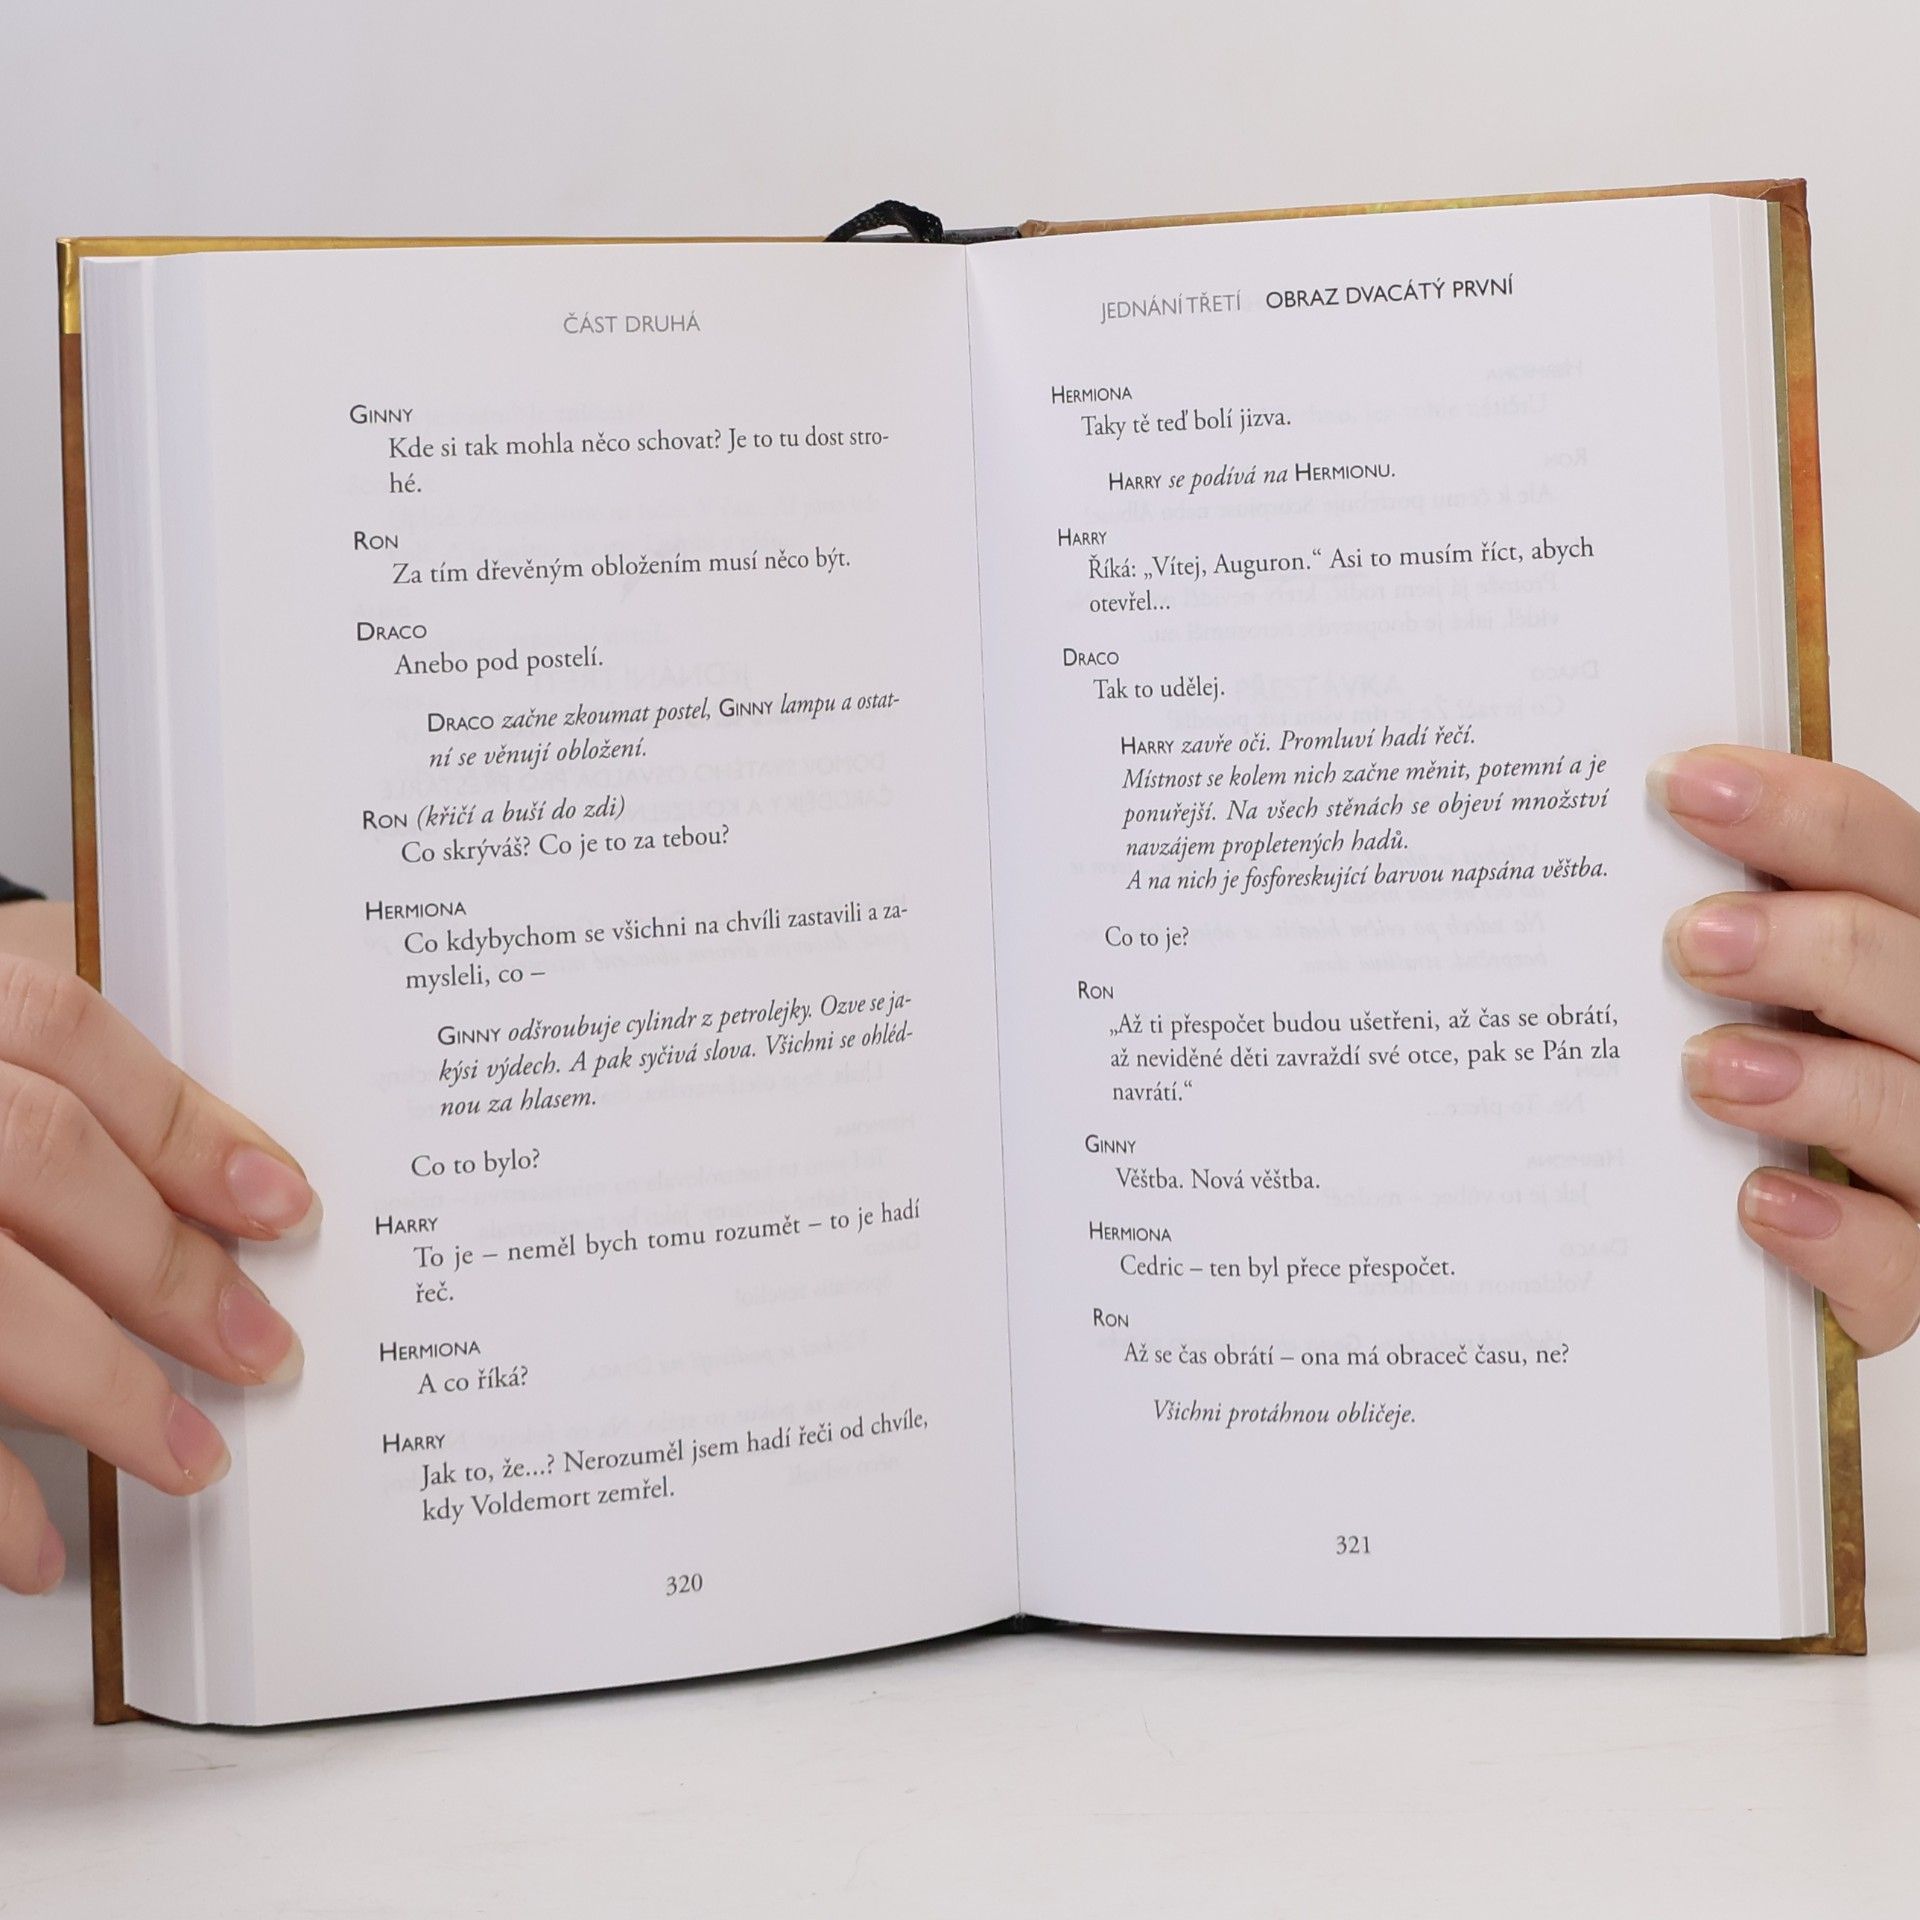 ČÁST DRUHÁ
GINNY
Kde si tak mohla něco schovat? Je to tu dost stro-
hé.
RON
Za tím dřevěným obložením musí něco být.
DRACO
Anebo pod postelí.
DRACO začne zkoumat postel, GINNY lampu a ostat-
ní se věnují obložení.
RON (křičí a buší do zdi)
Co skrýváš? Co je to za tebou?
HERMIONA
Co kdybychom se všichni na chvíli zastavili a za-
mysleli, co –
GINNY odšroubuje cylindr z petrolejky. Ozve se ja-
kýsi výdech. A pak syčivá slova. Všichni se ohléd-
nou za hlasem.
Co to bylo?
HARRY
To je – neměl bych tomu rozumět – to je hadí
řeč.
HERMIONA
A co říká?
HARRY
Jak to, že...? Nerozuměl jsem hadí řeči od chvíle,
kdy Voldemort zemřel.
320
JEDNÁNÍ TŘETÍ OBRAZ DVACÁTÝ PRVNÍ
HERMIONA
Taky tě teď bolí jizva.
HARRY se podívá na HERMIONU.
HARRY
Říká: „Vítej, Auguron.“ Asi to musím říct, abych
otevřel...
DRACO
Tak to udělej.
HARRY zavře oči. Promluví hadí řečí.
Místnost se kolem nich začne měnit, potemní a je
ponuřejší. Na všech stěnách se objeví množství
navzájem propletených hadů.
A na nich je fosforeskující barvou napsána věštba.
Co to je?
RON
„Až ti přespočet budou ušetřeni, až čas se obrátí,
až neviděné děti zavraždí své otce, pak se Pán zla
navrátí.“
GINNY
Věštba. Nová věštba.
HERMIONA
Cedric – ten byl přece přespočet.
RON
Až se čas obrátí – ona má obraceč času, ne?
Všichni protáhnou obličeje.
321